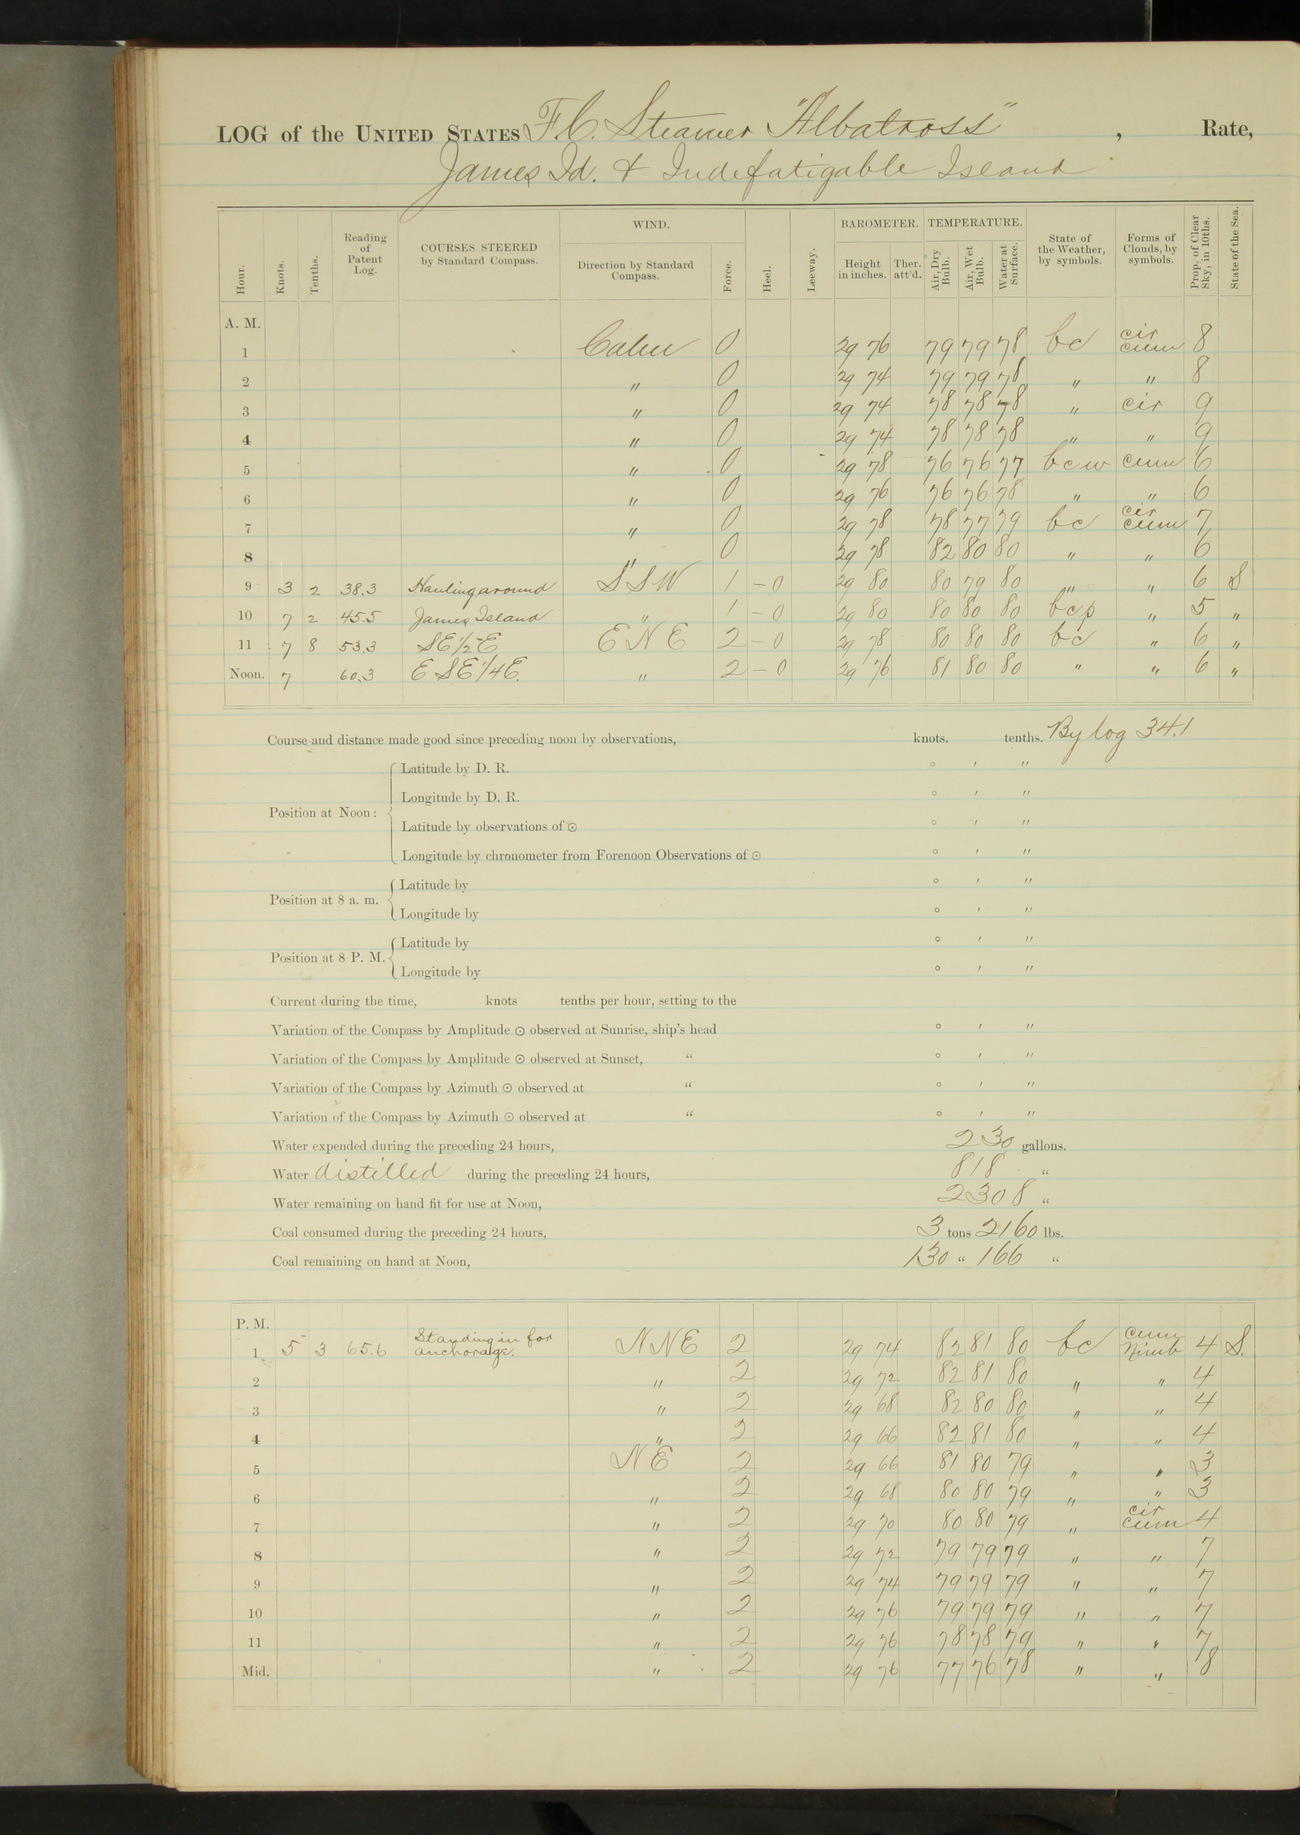 LOG of the UNITED STATES F.C. Steamer "Albatross" , Rate,
James Id. & Indefatigable Island
Hour. Knots. Tenths. Reading of Patent Log. COURSES STEERED by Standard Compass. WIND. Direction by Standard Compass. Force. Heel. Leeway. BAROMETER. Height in inches. Ther. att'd. TEMPERATURE. Air, Dry Bulb. Air, Wet Bulb. Water at Surface. State of the Weather, by symbols. Forms of Clouds, by symbols. Prop. of Clear Sky, in 10ths. State of the Sea.
A. M.
1 Calm 0 29 76 79 79 78 bc cir cum 8
2 " 0 29 74 79 79 78 " " 8
3 " 0 29 74 78 78 78 " cir 9
4 " 0 29 74 78 78 78 " " 9
5 " 0 29 78 76 76 77 bcw cum 6
6 " 0 29 76 76 76 78 " " 6
7 " 0 29 78 78 77 79 bc cir cum 7
8 " 0 29 78 82 80 80 " " 6
9 3 2 38.3 Hauling around SSW 1 - 0 29 80 80 79 80 " " 6 S
10 7 2 45.5 James Island " 1 - 0 29 80 80 80 80 bcp " 5 "
11 7 8 53.3 SE 1/2 E ENE 2 - 0 29 78 80 80 80 bc " 6 "
Noon. 7 60.3 ESE 1/4 E. " 2 - 0 29 76 81 80 80 " " 6 "
Course and distance made good since preceding noon by observations, knots. tenths. By log 34.1
Latitude by D. R. ° ′ ″
Longitude by D. R. ° ′ ″
Position at Noon:
Latitude by observations of ☉ ° ′ ″
Longitude by chronometer from Forenoon Observations of ☉ ° ′ ″
Position at 8 a. m. Latitude by ° ′ ″
Longitude by ° ′ ″
Position at 8 P. M. Latitude by ° ′ ″
Longitude by ° ′ ″
Current during the time, knots tenths per hour, setting to the
Variation of the Compass by Amplitude ☉ observed at Sunrise, ship's head ° ′ ″
Variation of the Compass by Amplitude ☉ observed at Sunset, " ° ′ ″
Variation of the Compass by Azimuth ☉ observed at " ° ′ ″
Variation of the Compass by Azimuth ☉ observed at " ° ′ ″
Water expended during the preceding 24 hours, 230 gallons.
Water distilled during the preceding 24 hours, 818 "
Water remaining on hand fit for use at Noon, 2308 "
Coal consumed during the preceding 24 hours, 3 tons 2160 lbs.
Coal remaining on hand at Noon, 130 " 166 "
P. M.
1 5 3 65.6 Standing in for anchorage. NNE 2 29 74 82 81 80 bc cum Nimb 4 S.
2 " 2 29 72 82 81 80 " " 4
3 " 2 29 68 82 80 80 " " 4
4 " 2 29 66 82 81 80 " " 4
5 NE 2 29 66 81 80 79 " " 3
6 " 2 29 68 80 80 79 " " 3
7 " 2 29 70 80 80 79 " cir cum 4
8 " 2 29 72 79 79 79 " " 7
9 " 2 29 74 79 79 79 " " 7
10 " 2 29 76 79 79 79 " " 7
11 " 2 29 76 78 78 79 " " 7
Mid. " 2 29 76 77 76 78 " " 8